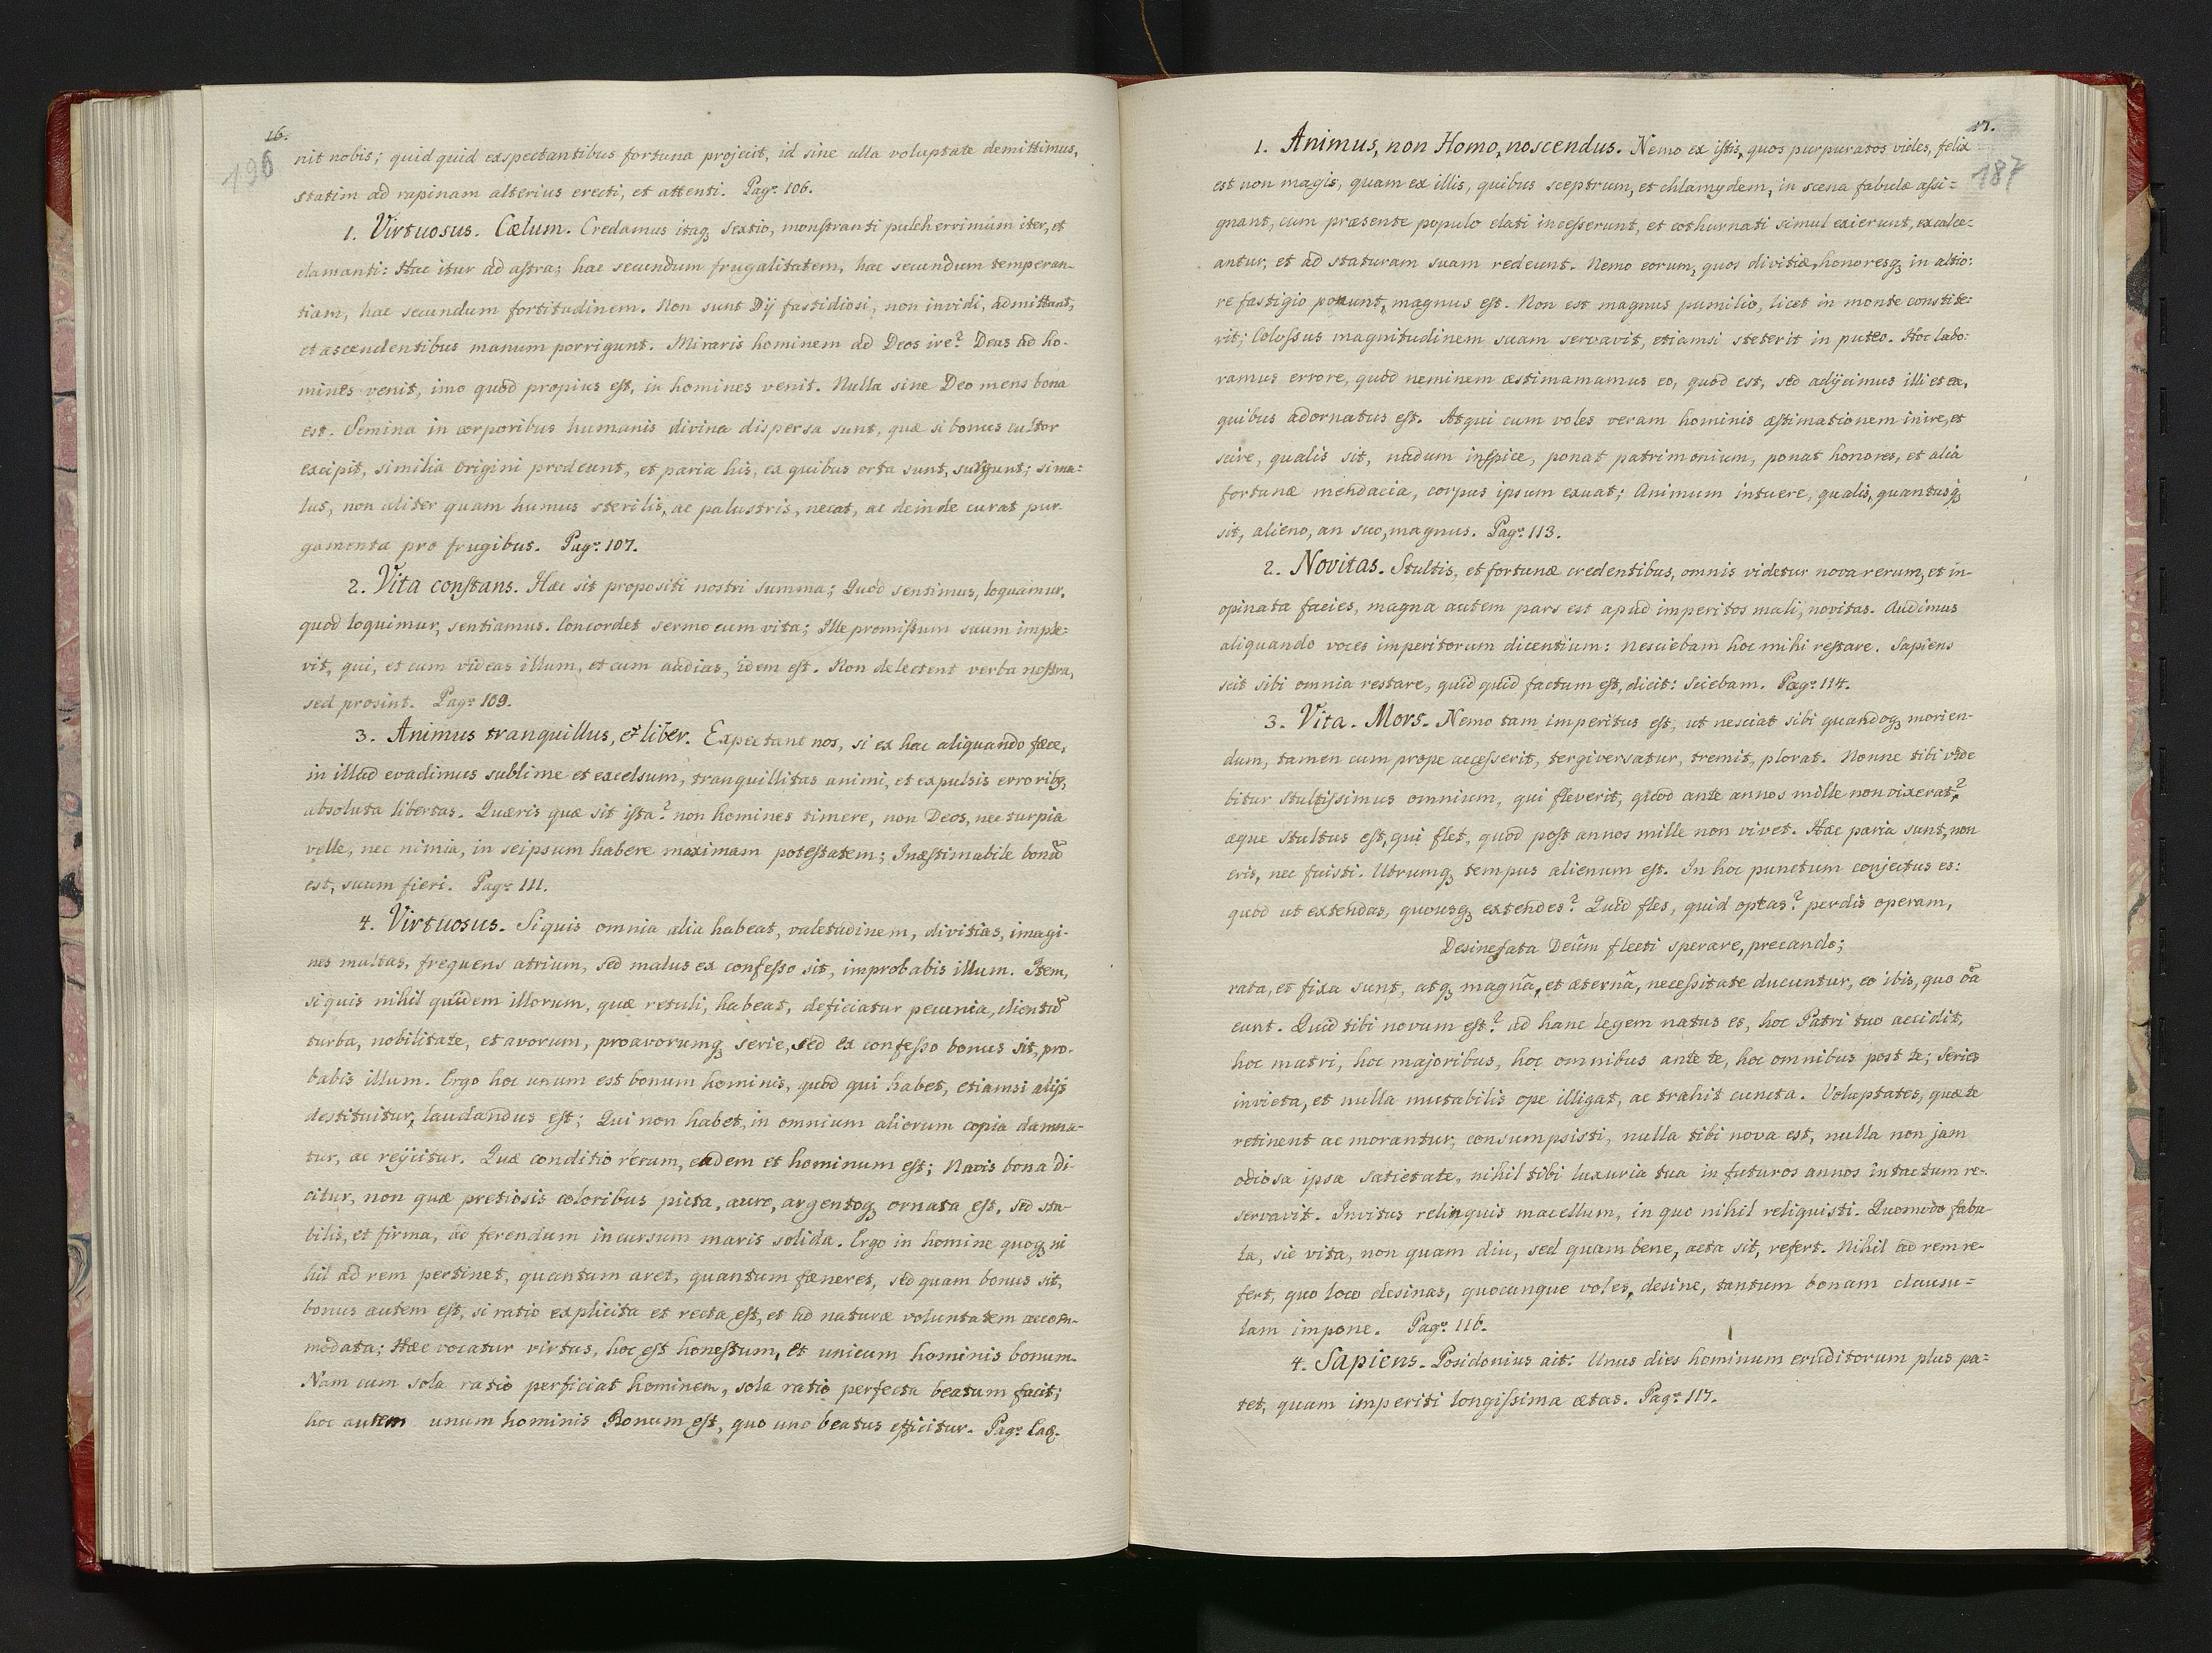 16.
196
nit nobis; quidquid exspectantibus fortuna projecit, id sine ulla voluptate demittimus,
statim ad rapinam alterius erecti, et attenti. Pag. 106.
1. Virtuosus. Cælum. Credamus itaq; Sextio, monstranti pulcherrimum iter, et
clamanti: Hac itur ad astra; hac secundum frugalitatem, hac secundum temperan-
tiam, hac secundum fortitudinem. Non sunt Dij fastidiosi, non invidi, admittunt,
et ascendentibus manum porrigunt. Miraris hominem ad Deos ire? Deus ad ho-
mines venit, imo quod propius est, in homines venit. Nulla sine Deo mens bona
est. Semina in corporibus humanis divina dispersa sunt, quæ si bonus cultor
excipit, similia origini prodeunt, et paria his, ex quibus orta sunt, surgunt; si ma:
lus, non aliter quam humus sterilis, ac palustris, necat, ac deinde curat pur
gamenta pro frugibus. Pag. 107.
2. Vita constans. Hæc sit propositi nostri summa; Quod sentimus, loquamur,
quod loquimur, sentiamus. Concordet sermo cum vita; Ille promissum suum imple:
vit, qui, et cum videas illum, et cum audias, idem est. Non delectent verba nostra,
sed prosint. Pag. 109.
3. Animus tranquillus, et liber. Expectant nos, si ex hac aliquando fæce,
in illud evadimus sublime et excelsum, tranquillitas animi, et expulsis errorib;
absoluta libertas. Quæris quæ sit ista? non homines timere, non Deos, nec turpia
velle, nec nimia, in seipsum habere maximam potestatem; Inæstimabile bonũ
est, suum fieri. Pag. 111.
4. Virtuosus. Siquis omnia alia habeat, valetudinem, divitias, imagi-
nes multas, frequens atrium, sed malus ex confesso sit, improbabis illum. Item,
siquis nihil quidem illorum, quæ retuli, habeat, deficiatur pecunia, clientũ
turba, nobilitate, et avorum, proavorumq; serie, sed ex confesso bonus sit, pro-
babis illum. Ergo hoc unum est bonum hominis, quod qui habet, etiamsi alijs
destituitur, laudandus est; Qui non habet, in omnium aliorum copia damna-
tur, ac rejicitur. Quæ conditio rerum, eadem et hominum est; Navis bona di-
citur, non quæ pretiosis coloribus picta, aure, argentoq; ornata est, sed sta-
bilis, et firma, ad ferendum incursum maris solida. Ergo in homine quoq; ni
hil ad rem pertinet, quantum aret, quantum fæneret, sed quam bonus sit,
bonus autem est, si ratio explicita et recta est, et ad naturæ voluntatem accom-
modata; Hæc vocatur virtus, hoc est honestum, et unicum hominis bonum.
Nam cum sola ratio perficiat hominem, sola ratio perfecta beatum facit;
hoc autem unum hominis Bonum est, quo uno beatus efficitur. Pag. Eaq.
17.
187
1. Animus, non Homo, noscendus. Nemo ex istis, quos purpuratos vides, felix
est non magis, quam ex illis, quibus sceptrum, et chlamydem, in scena fabulæ assi=
gnant, cum præsente populo elati incesserunt, et cothurnati simul exierunt, excalce-
antur, et ad staturam suam redeunt. Nemo eorum, quos divitiæ, honoresq; in altio:
re fastigio ponunt, magnus est. Non est magnus pumilio, licet in monte constite:
rit; Colossus magnitudinem suam servavit, etiamsi steterit in puteo. Hoc labo:
ramus errore, quod neminem æstimamamus eo, quod est, sed adijcimus illi et ea,
quibus adornatus est. Atqui cum voles veram hominis æstimationem inire, et
scire, qualis sit, nudum inspice, ponat patrimonium, ponat honores, et alia
fortunæ mendacia, corpus ipsum exuat; Animum intuere, qualis, quantusq;
sit, alieno, an suo, magnus. Pag. 113.
2. Novitas. Stultis, et fortunæ credentibus, omnis videtur nova rerum, et in-
opinata facies, magna autem pars est apud imperitos mali, novitas. Audimus
aliquando voces imperitorum dicentium: nesciebam hoc mihi restare. Sapiens
scit sibi omnia restare, quidquid factum est, dicit: Sciebam. Pag. 114.
3. Vita. Mors. Nemo tam imperitus est, ut nesciat sibi quandoq; morien-
dum, tamen cum prope accesserit, tergiversatur, tremit, plorat. Nonne tibi vide
bitur stultissimus omnium, qui fleverit, quod ante annos mille non vixerat?
æque stultus est, qui flet, quod post annos mille non vivet. Hæc paria sunt, non
eris, nec fuisti. Utrumq; tempus alienum est. In hoc punctum conjectus es:
quod ut extendas, quousq; extendes? Quid fles, quid optas? perdis operam,
Desine fata Deûm flecti sperare, precando;
rata, et fixa sunt, atq; magnâ, et æternâ, necessitate ducuntur, eo ibis, quo oĩa
eunt. Quid tibi novum est? ad hanc legem natus es, hoc Patri tuo accidit,
hoc matri, hoc majoribus, hoc omnibus ante te, hoc omnibus post te; Series
invicta, et nulla mutabilis ope illigat, ac trahit cuncta. Voluptates, quæ te
retinent ac morantur, consumpsisti, nulla tibi nova est, nulla non jam
odiosa ipsa satietate, nihil tibi luxuria tua in futuros annos intactum re-
servavit. Invitus relinquis macellum, in quo nihil reliquisti. Quomodo fabu
la, sic vita, non quam diu, sed quam bene, acta sit, refert. Nihil ad rem re-
fert, quo loco desinas, quocunque voles, desine, tantum bonam clausu=
lam impone. Pag. 116.
4. Sapiens. Posidonius ait: Unus dies hominum eruditorum plus pa=
tet, quam imperiti longissima ætas. Pag. 117.